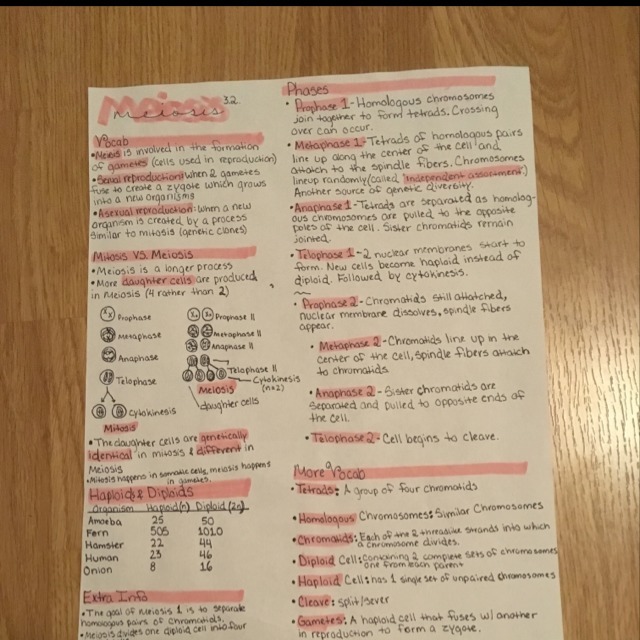 Meiosis 3.2
meiosis
Vocab
•Meiosis is involved in the formation
of gametes (cells used in reproduction)
•Sexual reproduction: when 2 gametes
fuse to create a zygote which grows
into a new organisms
•Asexual reproduction: when a new
organism is created by a process
similar to mitosis (genetic clones)
Mitosis VS. Meiosis
•Meiosis is a longer process
•More daughter cells are produced
in Meiosis (4 rather than 2)
Prophase
Metaphase
Anaphase
Telophase
Cytokinesis
Mitosis
Prophase II
Metaphase II
Anaphase II
Telophase II
Cytokinesis
(n=2)
Meiosis
daughter cells
•The daughter cells are genetically
identical in mitosis & different in
Meiosis
•Mitosis happens in somatic cells, meiosis happens
in gametes.
Haploids & Diploids
Organism Haploid(n) Diploid (2n)
Amoeba 25 50
Fern 505 1010
Hamster 22 44
Human 23 46
Onion 8 16
Extra Info
•The goal of meiosis 1 is to separate
homologous pairs of chromatids.
•Meiosis divides one diploid cell into four
Phases
•Prophase 1-Homologous chromosomes
join together to form tetrads. Crossing
over can occur.
•Metaphase 1-Tetrads of homologous pairs
line up along the center of the cell and
attatch to the spindle fibers. Chromosomes
lineup randomly (called "independent assortment")
Another source of genetic diversity.
•Anaphase 1-Tetrads are separated as homolog-
ous chromosomes are pulled to the opposite
poles of the cell. Sister chromatids remain
jointed.
•Telophase 1-2 nuclear membranes start to
form. New cells become haploid instead of
diploid. Followed by cytokinesis.
•Prophase 2-Chromatids still attatched,
nuclear membrane dissolves, spindle fibers
appear.
•Metaphase 2-Chromatids line up in the
center of the cell, spindle fibers attatch
to chromatids
•Anaphase 2-Sister chromatids are
separated and pulled to opposite ends of
the cell.
•Telophase 2-Cell begins to cleave.
More Vocab
•Tetrads: A group of four chromatids
•Homologous Chromosomes: Similar Chromosomes
•Chromatids: Each of the 2 threadlike strands into which
a chromosome divides.
•Diploid Cell: Containing 2 complete sets of chromosomes
one from each parent
•Haploid Cell: has 1 single set of unpaired chromosomes
•Cleave: split/sever
•Gametes: A haploid cell that fuses w/ another
in reproduction to form a zygote.